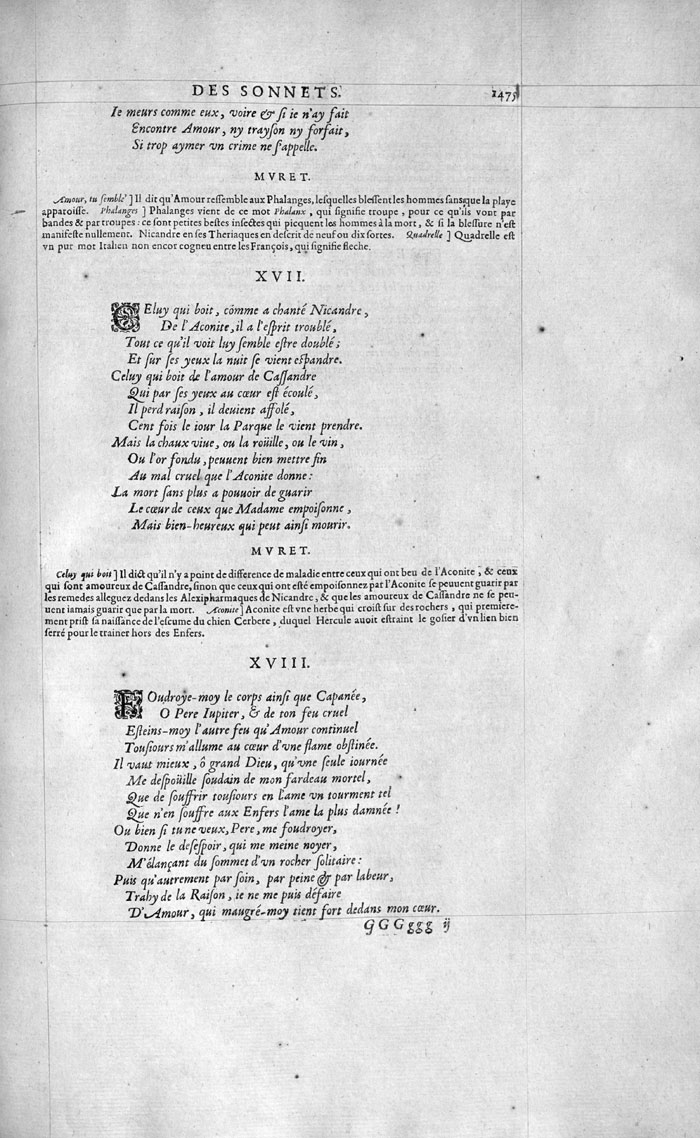 DES SONNETS. 1475
Ie meurs comme eux, voire & si ie n'ay fait
Encontre Amour, ny trayson ny forfait,
Si trop aymer vn crime ne s'appelle.
MVRET.
Amour, tu semble'] Il dit qu'Amour ressemble aux Phalanges, lesquelles blessent les hommes sans que la playe
apparoisse. Phalanges ] Phalanges vient de ce mot Phalanx, qui signifie troupe, pour ce qu'ils vont par
bandes & par troupes : ce sont petites bestes insectes qui piequent les hommes à la mort, & si la blessure n'est
manifeste nullement. Nicandre en ses Theriaques en descrit de neuf ou dix sortes. Quadrelle ] Quadrelle est
vn pur mot Italien non encor cogneu entre les François, qui signifie fleche.
XVII.
CEluy qui boit, cõme a chanté Nicandre,
De l'Aconite, il a l'esprit troublé,
Tout ce qu'il voit luy semble estre doublé;
Et sur ses yeux la nuit se vient espandre.
Celuy qui boit de l'amour de Cassandre
Qui par ses yeux au cœur est écoulé,
Il perd raison, il deuient affolé,
Cent fois le iour la Parque le vient prendre.
Mais la chaux viue, ou la roüille, ou le vin,
Ou l'or fondu, peuuent bien mettre fin
Au mal cruel que l'Aconite donne:
La mort sans plus a pouuoir de guarir
Le cœur de ceux que Madame empoisonne,
Mais bien-heureux qui peut ainsi mourir.
MVRET.
Celuy qui boit ] Il dict qu'il n'y a point de difference de maladie entre ceux qui ont beu de l'Aconite, & ceux
qui sont amoureux de Cassandre, sinon que ceux qui ont esté empoisonnez par l'Aconite se peuuent guarir par
les remedes alleguez dedans les Alexipharmaques de Nicandre, & que les amoureux de Cassandre ne se peu-
uent iamais guarir que par la mort. Aconite ] Aconite est vne herbe qui croist sur des rochers, qui premiere-
ment prist sa naissance de l'escume du chien Cerbere, duquel Hercule auoit estraint le gosier d'vn lien bien
serré pour le trainer hors des Enfers.
XVIII.
FOudroye-moy le corps ainsi que Capanée,
O Pere Iupiter, & de ton feu cruel
Esteins-moy l'autre feu qu'Amour continuel
Tousiours m'allume au cœur d'vne flame obstinée.
Il vaut mieux, ô grand Dieu, qu'vne seule iournée
Me despoüille soudain de mon fardeau mortel,
Que de souffrir tousiours en l'ame vn tourment tel
Que n'en souffre aux Enfers l'ame la plus damnée !
Ou bien si tu ne veux, Pere, me foudroyer,
Donne le desespoir, qui me meine noyer,
M'élançant du sommet d'vn rocher solitaire:
Puis qu'autrement par soin, par peine & par labeur,
Trahy de la Raison, ie ne me puis défaire
D'Amour, qui maugré-moy tient fort dedans mon cœur.
GGGggg ij